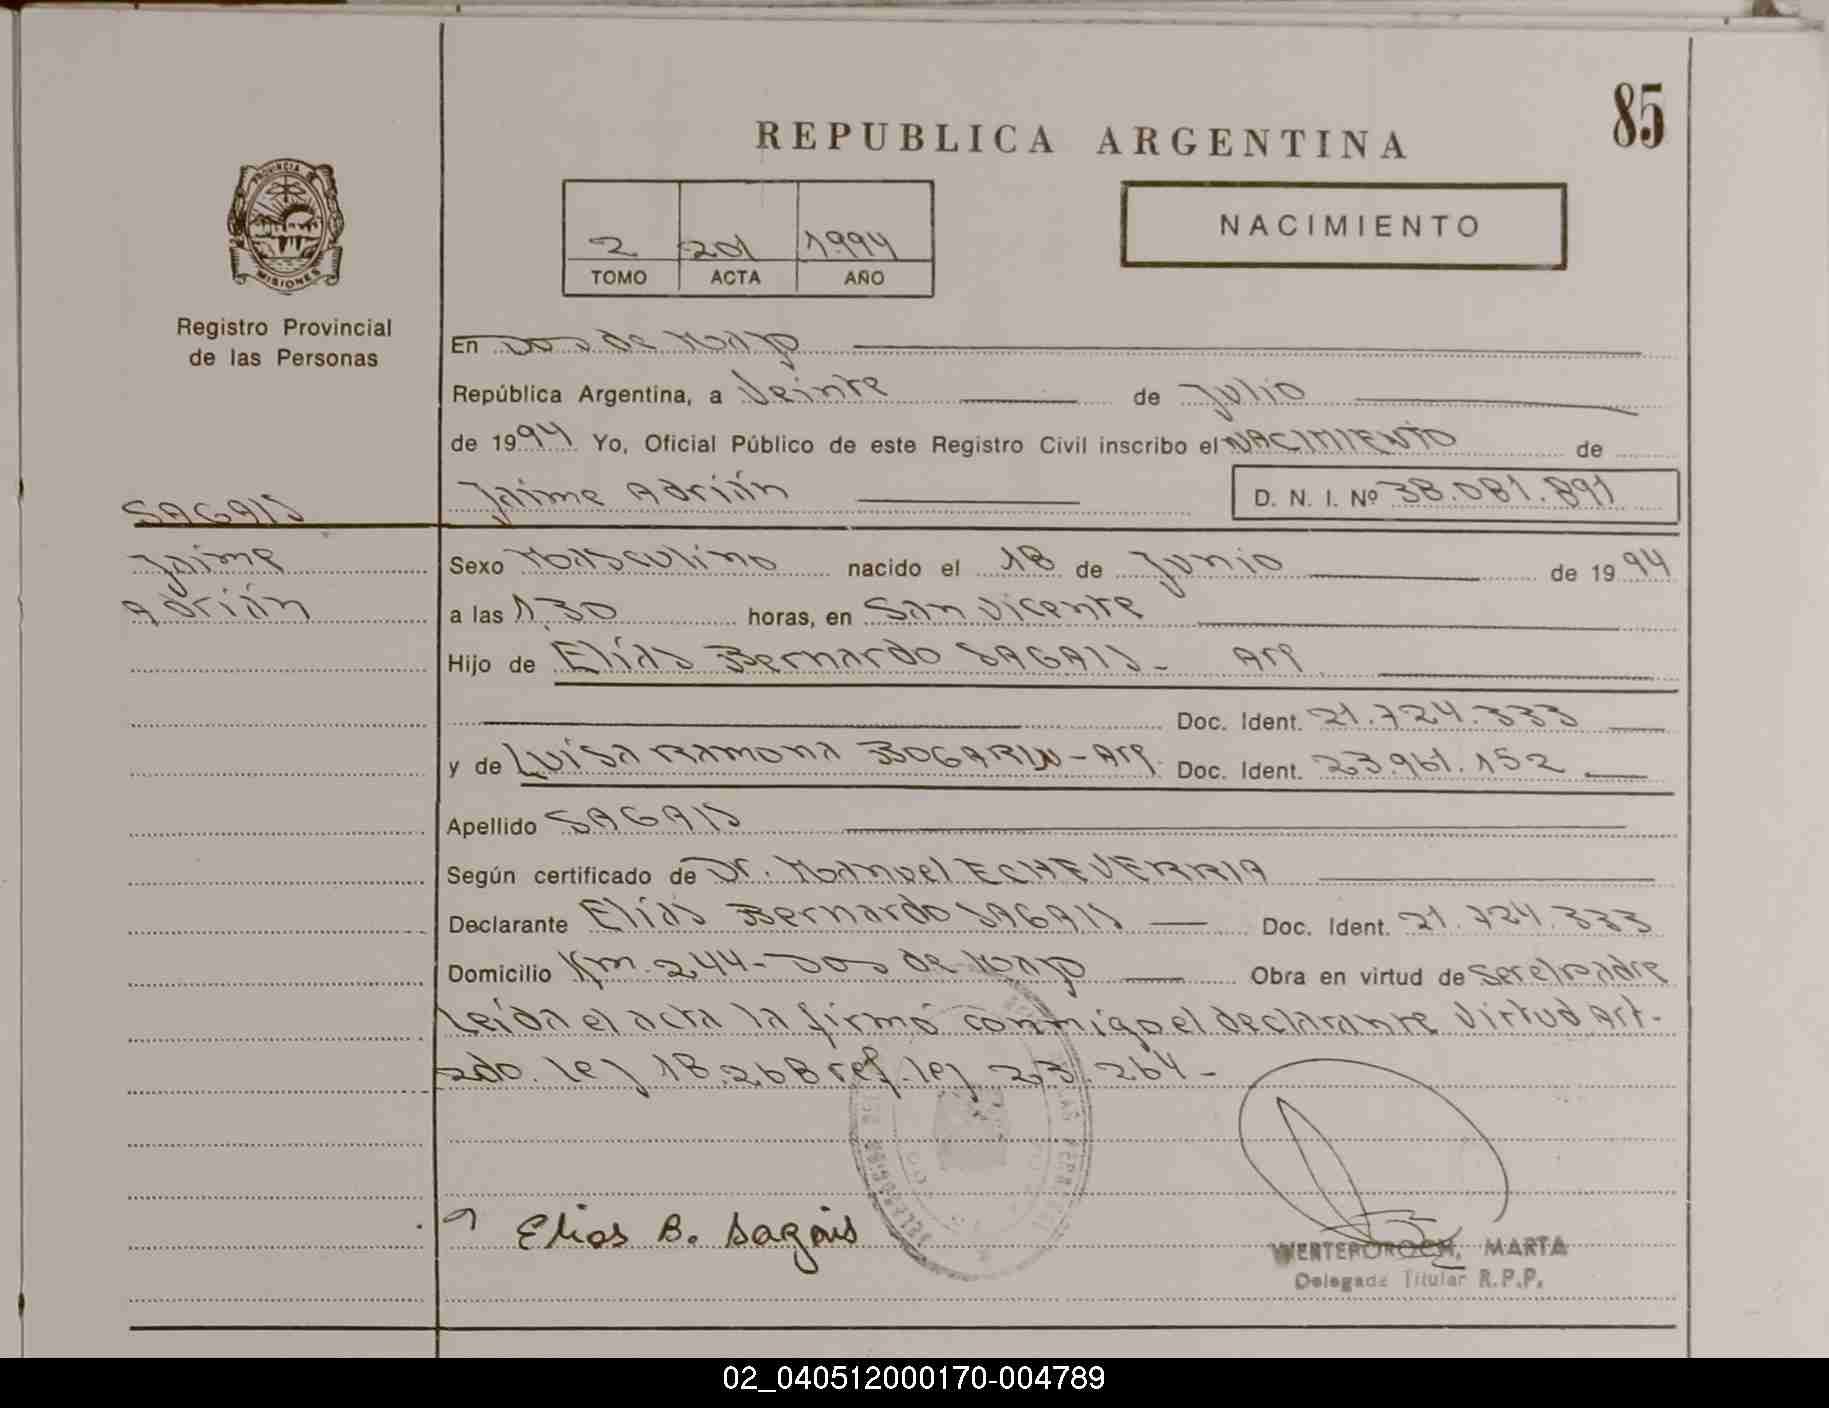 85
REPUBLICA ARGENTINA
PROVINCIA DE
MISIONES
Registro Provincial
de las Personas
2 201 1994
TOMO ACTA AÑO
NACIMIENTO
En Dos de Mayo
República Argentina, a Veinte de Julio
de 1994 Yo, Oficial Público de este Registro Civil inscribo el NACIMIENTO de
Jaime Adrián D. N. I. Nº 38.081.891
SAGAIS
Jaime
Adrián
Sexo Masculino nacido el 18 de Junio de 1994
a las 1,30 horas, en San Vicente
Hijo de Elías Bernardo SAGAIS - Arg
Doc. Ident. 21.724.333
y de Luisa Ramona BOGARIN - Arg. Doc. Ident. 23.961.152
Apellido SAGAIS
Según certificado de Dr. Manuel ECHEVERRIA
Declarante Elías Bernardo SAGAIS Doc. Ident. 21.724.333
Domicilio Km. 244 - Dos de Mayo Obra en virtud de ser el padre
Leída el acta la firmó conmigo el declarante virtud Art-
2do. ley 18.268 ref. ley 23.264 -
Elias B. Sagais
MARTA
Delegada Titular R.P.P.
02_040512000170-004789